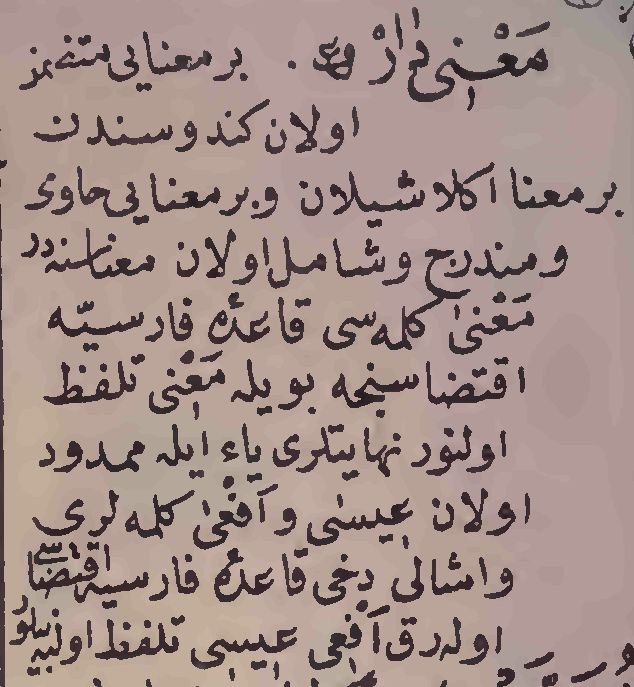 مَعْنِى دَارْ وع . بر معنایی متضمن
اولان کندوسندن
بر معنا اکلاشیلان وبر معنایی حاوی
ومندرج وشامل اولان معناسنه در
مَعْنیٰ کلمه سی قاعدهٔ فارسیّه
اقتضاسنجه بویله مَعْنِی تلفظ
اولنور نهایتلری یاء ایله ممدود
اولان عیسٰی وأفْعیٰ کلمه لری
وامثالی دخی قاعدهٔ فارسیه اقتضاسی
اولەرق أَفْعِی عِیسِی تلفظ